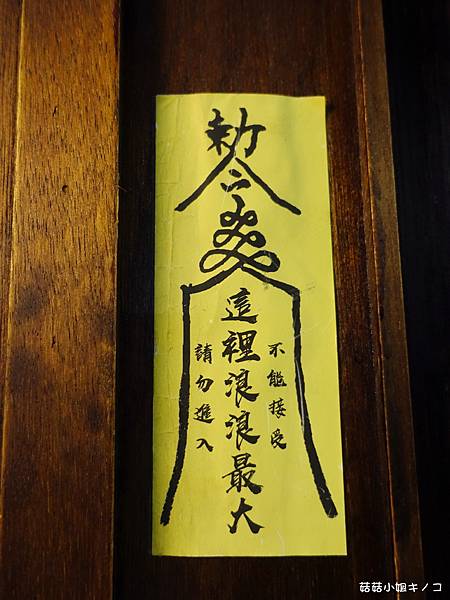 勅令
這裡浪浪最大
不能接受
請勿進入
菇菇小姐キノコ